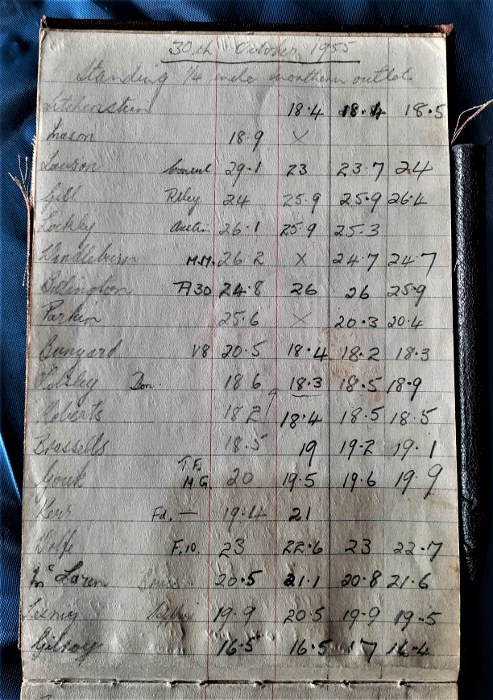 30th October 1955
Standing 1/4 mile
Litchenstein 18.4 18.4 18.5
Mason 18.9 X
Lawson 29.1 23 23.7 24
Gill Riley 24 25.9 25.9 26.4
Lockley Austin 26.1 25.9 25.3
M.M. 26.2 X 24.7 24.7
A30 24.8 26 26 25.9
Parkin 25.6 X 20.3 20.4
Bunyard V8 20.5 18.4 18.2 18.3
Don. 18.6 18.3 18.5 18.9
Roberts 18.2 18.4 18.5 18.5
18.5 19 19.2 19.1
T.F.
M.G. 20 19.5 19.6 19.9
Fd. — 19.4 21
Wolfe F.10. 23 22.6 23 22.7
McLaren 20.5 21.1 20.8 21.6
19.9 20.5 19.9 19.5
Gilroy 16.5 16.5 17 16.4